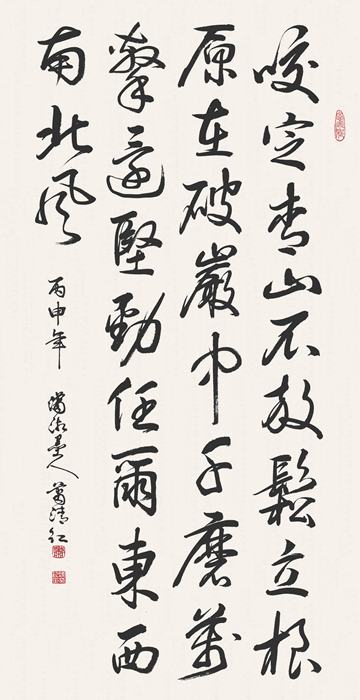 咬定青山不放鬆立根
原在破巖中千磨萬
擊還堅勁任爾東西
南北風
丙申年 瀟湘墨人 清红